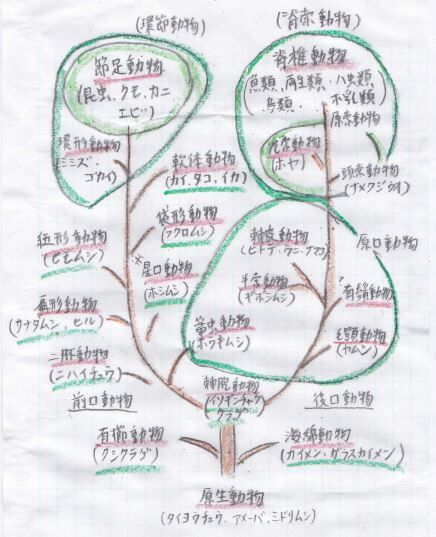 (環節動物)
(脊索動物)
節足動物
(昆虫、クモ、カニ
エビ)
脊椎動物
(魚類、両生類、ハ虫類
鳥類、ホ乳類)
原索動物
環形動物
(ミミズ、
ゴカイ)
軟体動物
(カイ、タコ、イカ)
尾索動物
(ホヤ)
頭索動物
(ナメクジウオ)
袋形動物
(フクロムシ)
紐形動物
(ヒモムシ)
星口動物
(ホシムシ)
棘皮動物
(ヒトデ・ウニ・ナマコ)
原口動物
半索動物
(ギボシムシ)
有鬚動物
扁形動物
(サナダムシ、ヒル)
箒虫動物
(ホウキムシ)
毛顎動物
(ヤムシ)
二胚動物
(ニハイチュウ)
刺胞動物
(イソギンチャク
クラゲ)
前口動物
後口動物
有櫛動物
(クシクラゲ)
海綿動物
(カイメン、ガラスカイメン)
原生動物
(タイヨウチュウ、アメーバ、ミドリムシ)